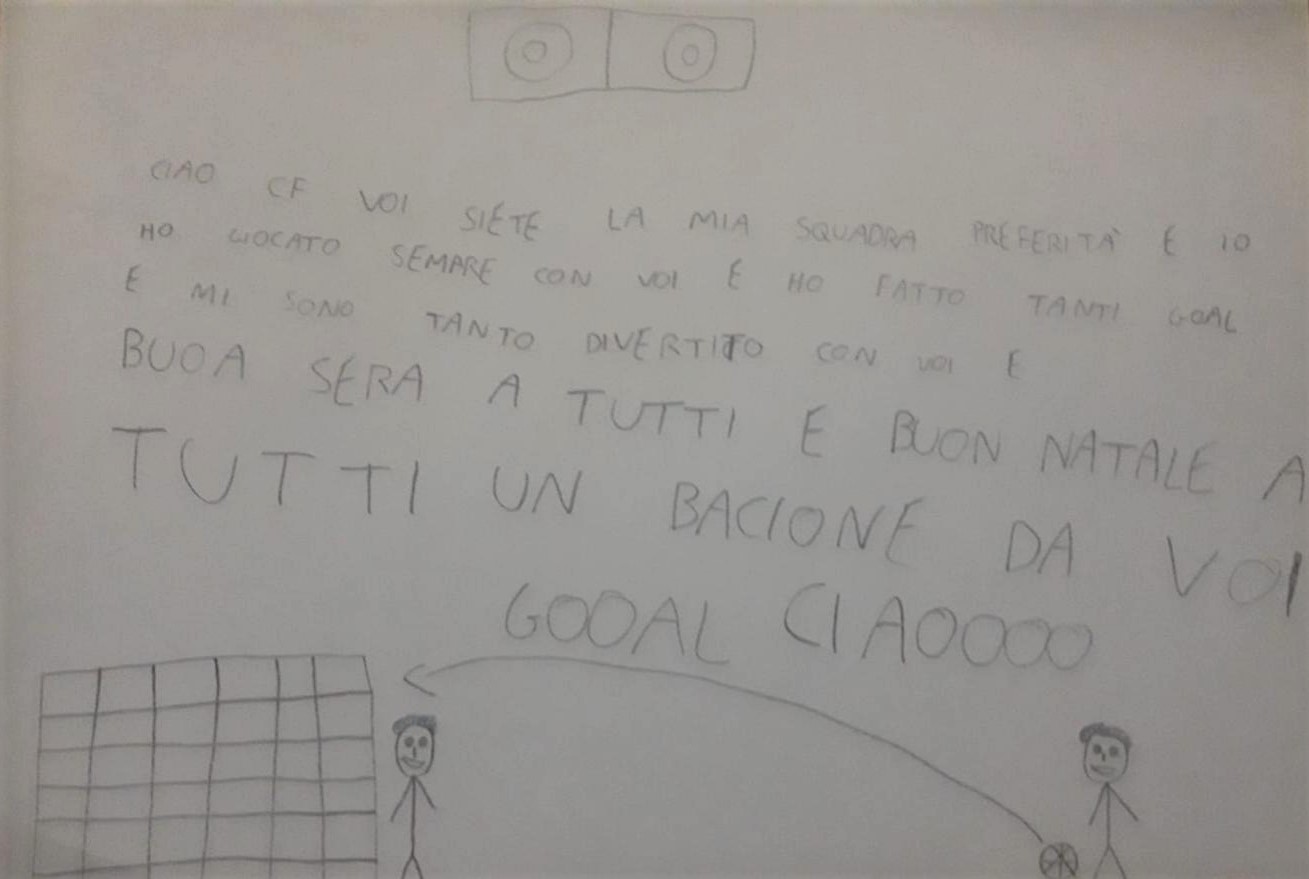 CIAO CF VOI SIETE LA MIA SQUADRA PREFERITA' E IO
HO GIOCATO SEMARE CON VOI E HO FATTO TANTI GOAL
E MI SONO TANTO DIVERTITO CON VOI E
BUOA SERA A TUTTI E BUON NATALE A
TUTTI UN BACIONE DA VOI
GOOAL CIAOOOO